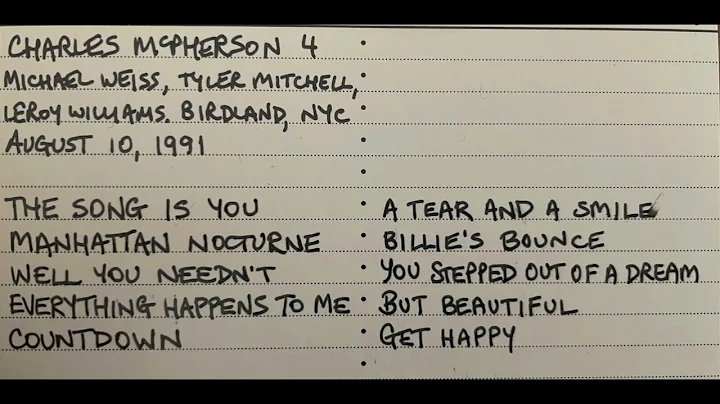 CHARLES McPHERSON 4
MICHAEL WEISS, TYLER MITCHELL,
LEROY WILLIAMS. BIRDLAND, NYC
AUGUST 10, 1991
THE SONG IS YOU
MANHATTAN NOCTURNE
WELL YOU NEEDN'T
EVERYTHING HAPPENS TO ME
COUNTDOWN
A TEAR AND A SMILE
BILLIE'S BOUNCE
YOU STEPPED OUT OF A DREAM
BUT BEAUTIFUL
GET HAPPY